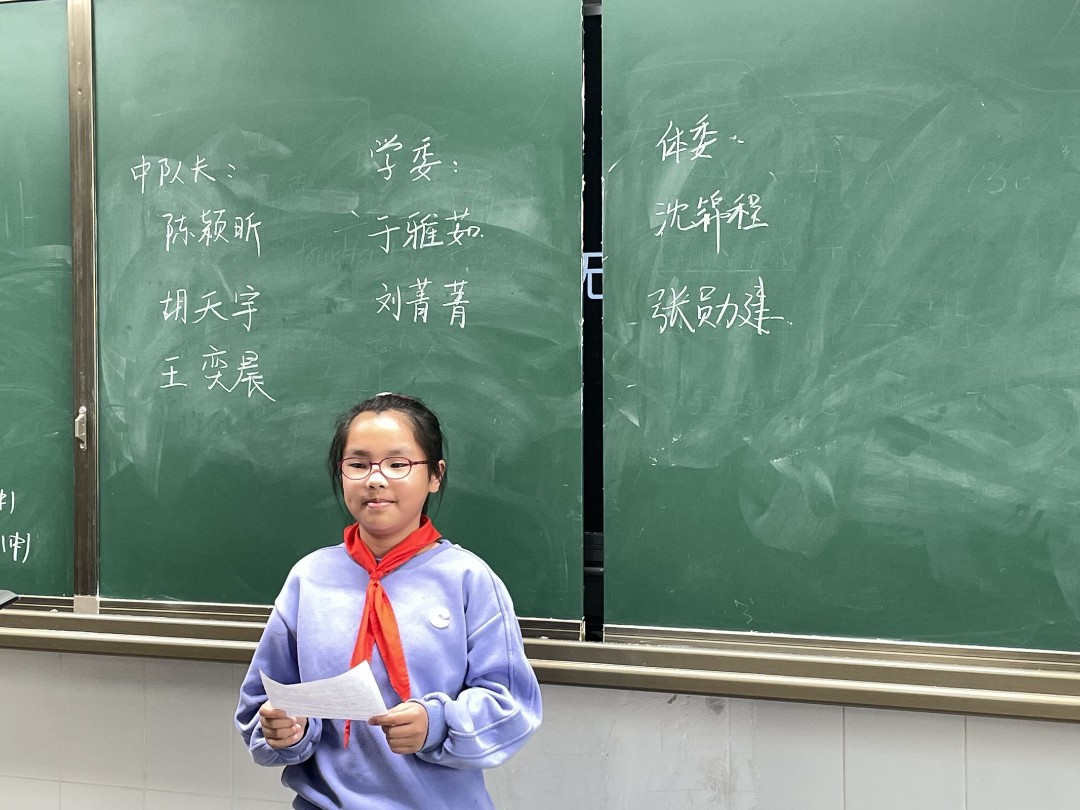 中队长：
陈颖昕
胡天宇
王奕晨
学委：
于雅茹
刘菁菁
体委：
张员力建